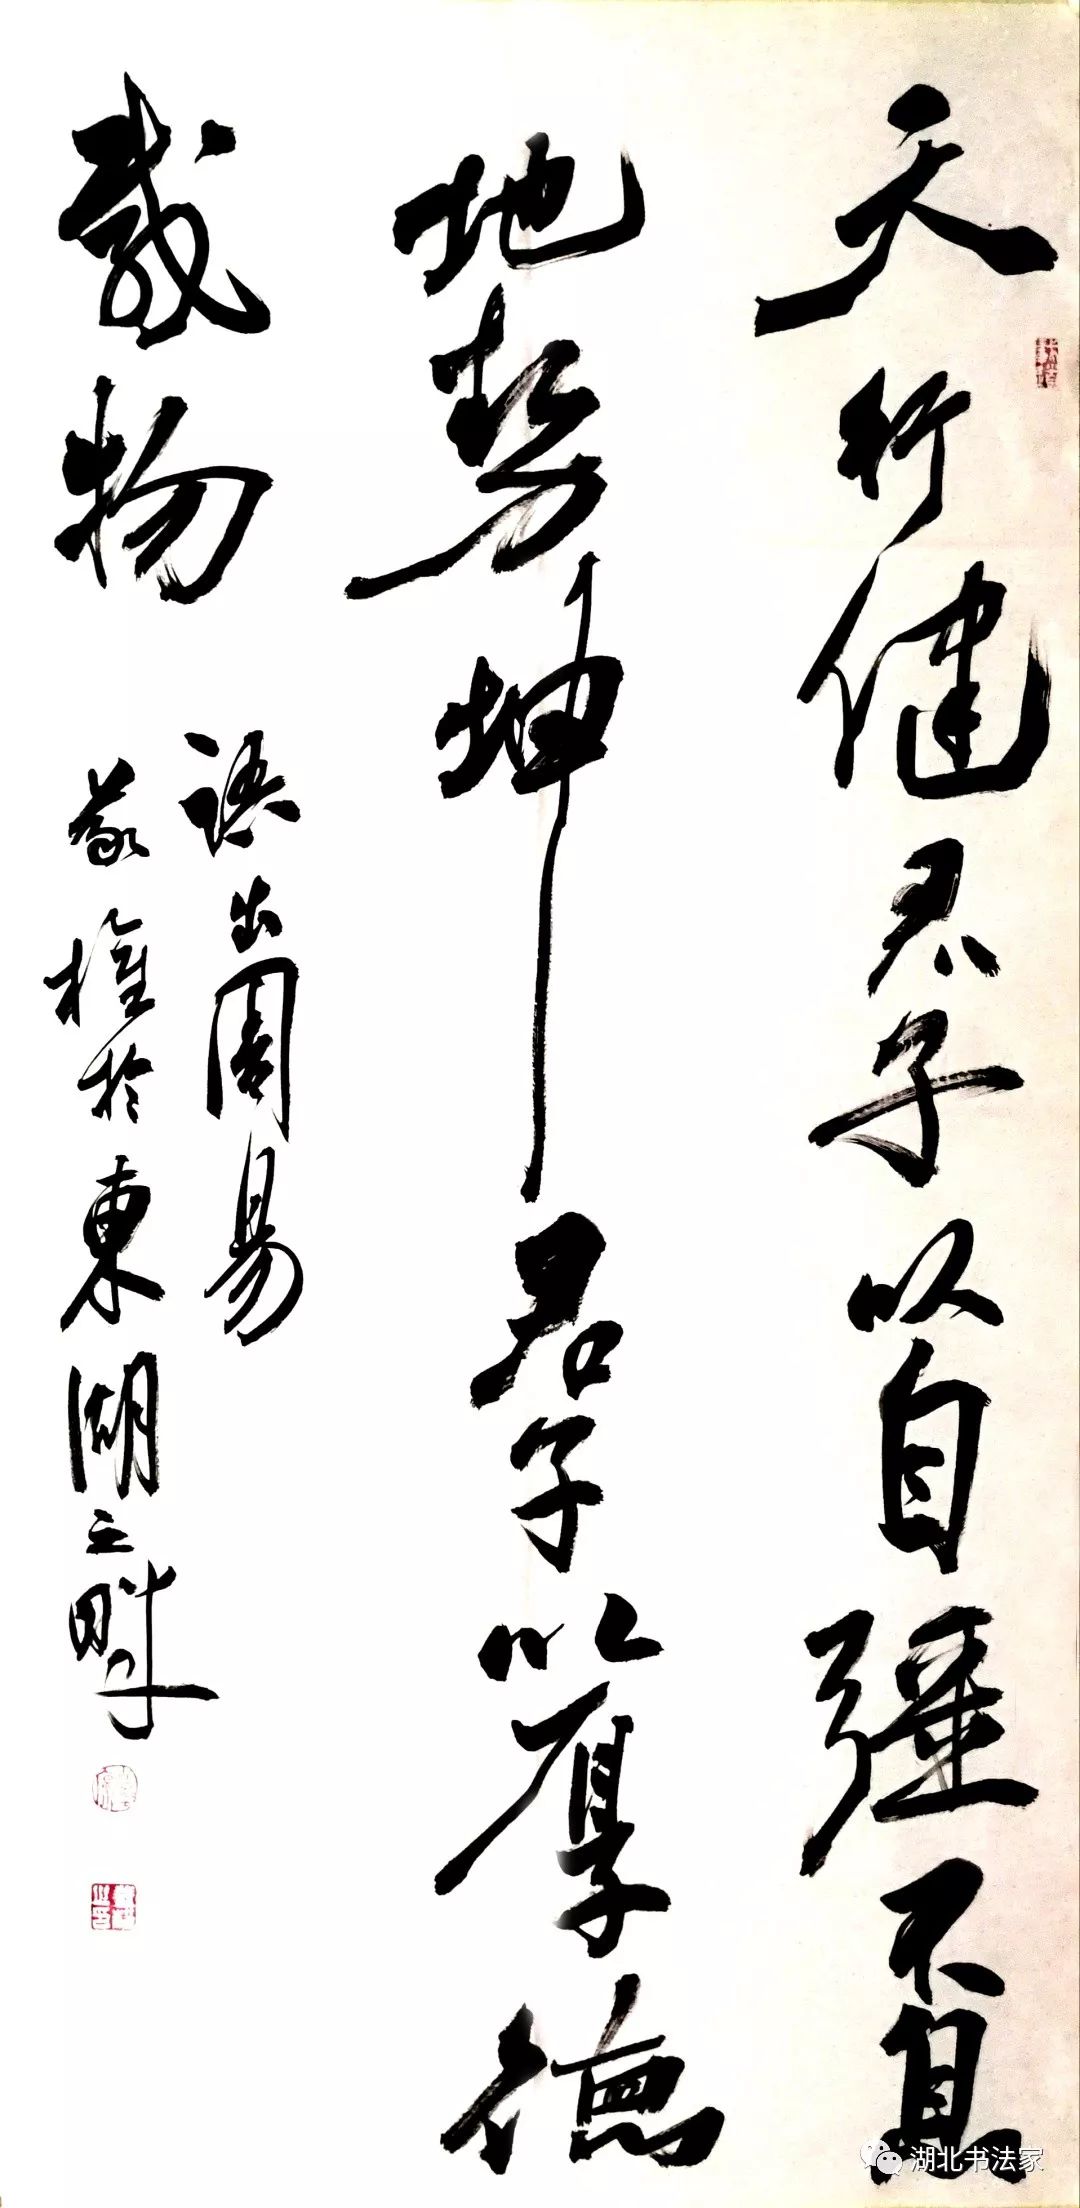 天行健君子以自强不息
地势坤君子以厚德
载物
语出周易
权於東湖之畔
湖北书法家